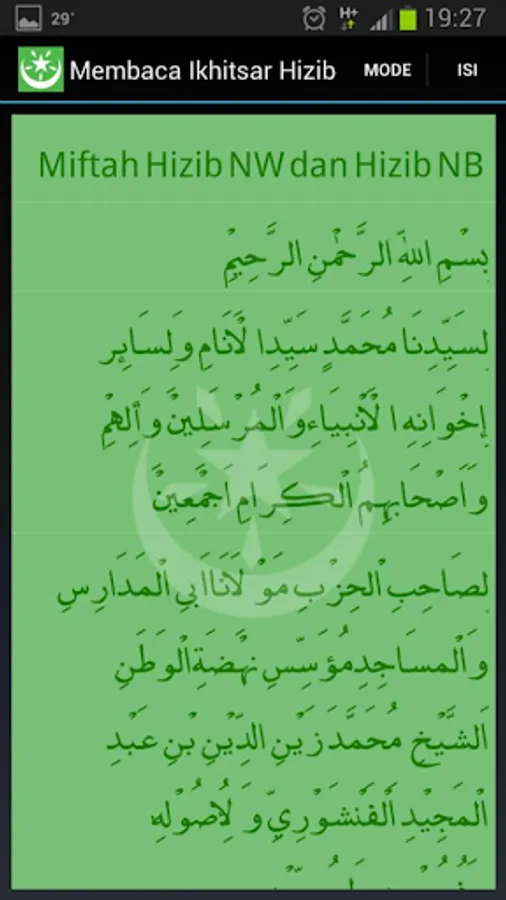 29°
H+
19:27
Membaca Ikhitsar Hizib
MODE
ISI
Miftah Hizib NW dan Hizib NB
بِسْمِ اللهِ الرَّحْمٰنِ الرَّحِيْمِ
لِسَيِّدِنَا مُحَمَّدٍ سَيِّدِا لْأَنَامِ وَلِسَايِٕرِ
إِخْوَانِهِ ا لْأَنْبِيَاءِ وَالْمُرْسَلِيْنَ وَآلِهِمْ
وَاَصْحَابِهِمُ الْكِرَامِ اَجْمَعِيْنَ
لِصَاحِبِ الْحِزْبِ مَوْ لَانَا اَبِي الْمَدَارِسِ
وَالْمسَاجِدِ مُؤَسِّسِ نَهْضَةِ الْوَطَنِ
اَلشَّيْخِ مُحَمَّدْ زَيْنِ الدِّيْنِ بْنِ عَبْدِ
الْمَجِيْدِ الْفَنْشَوْرِيِّ وَ لِأُصُوْلِهِ